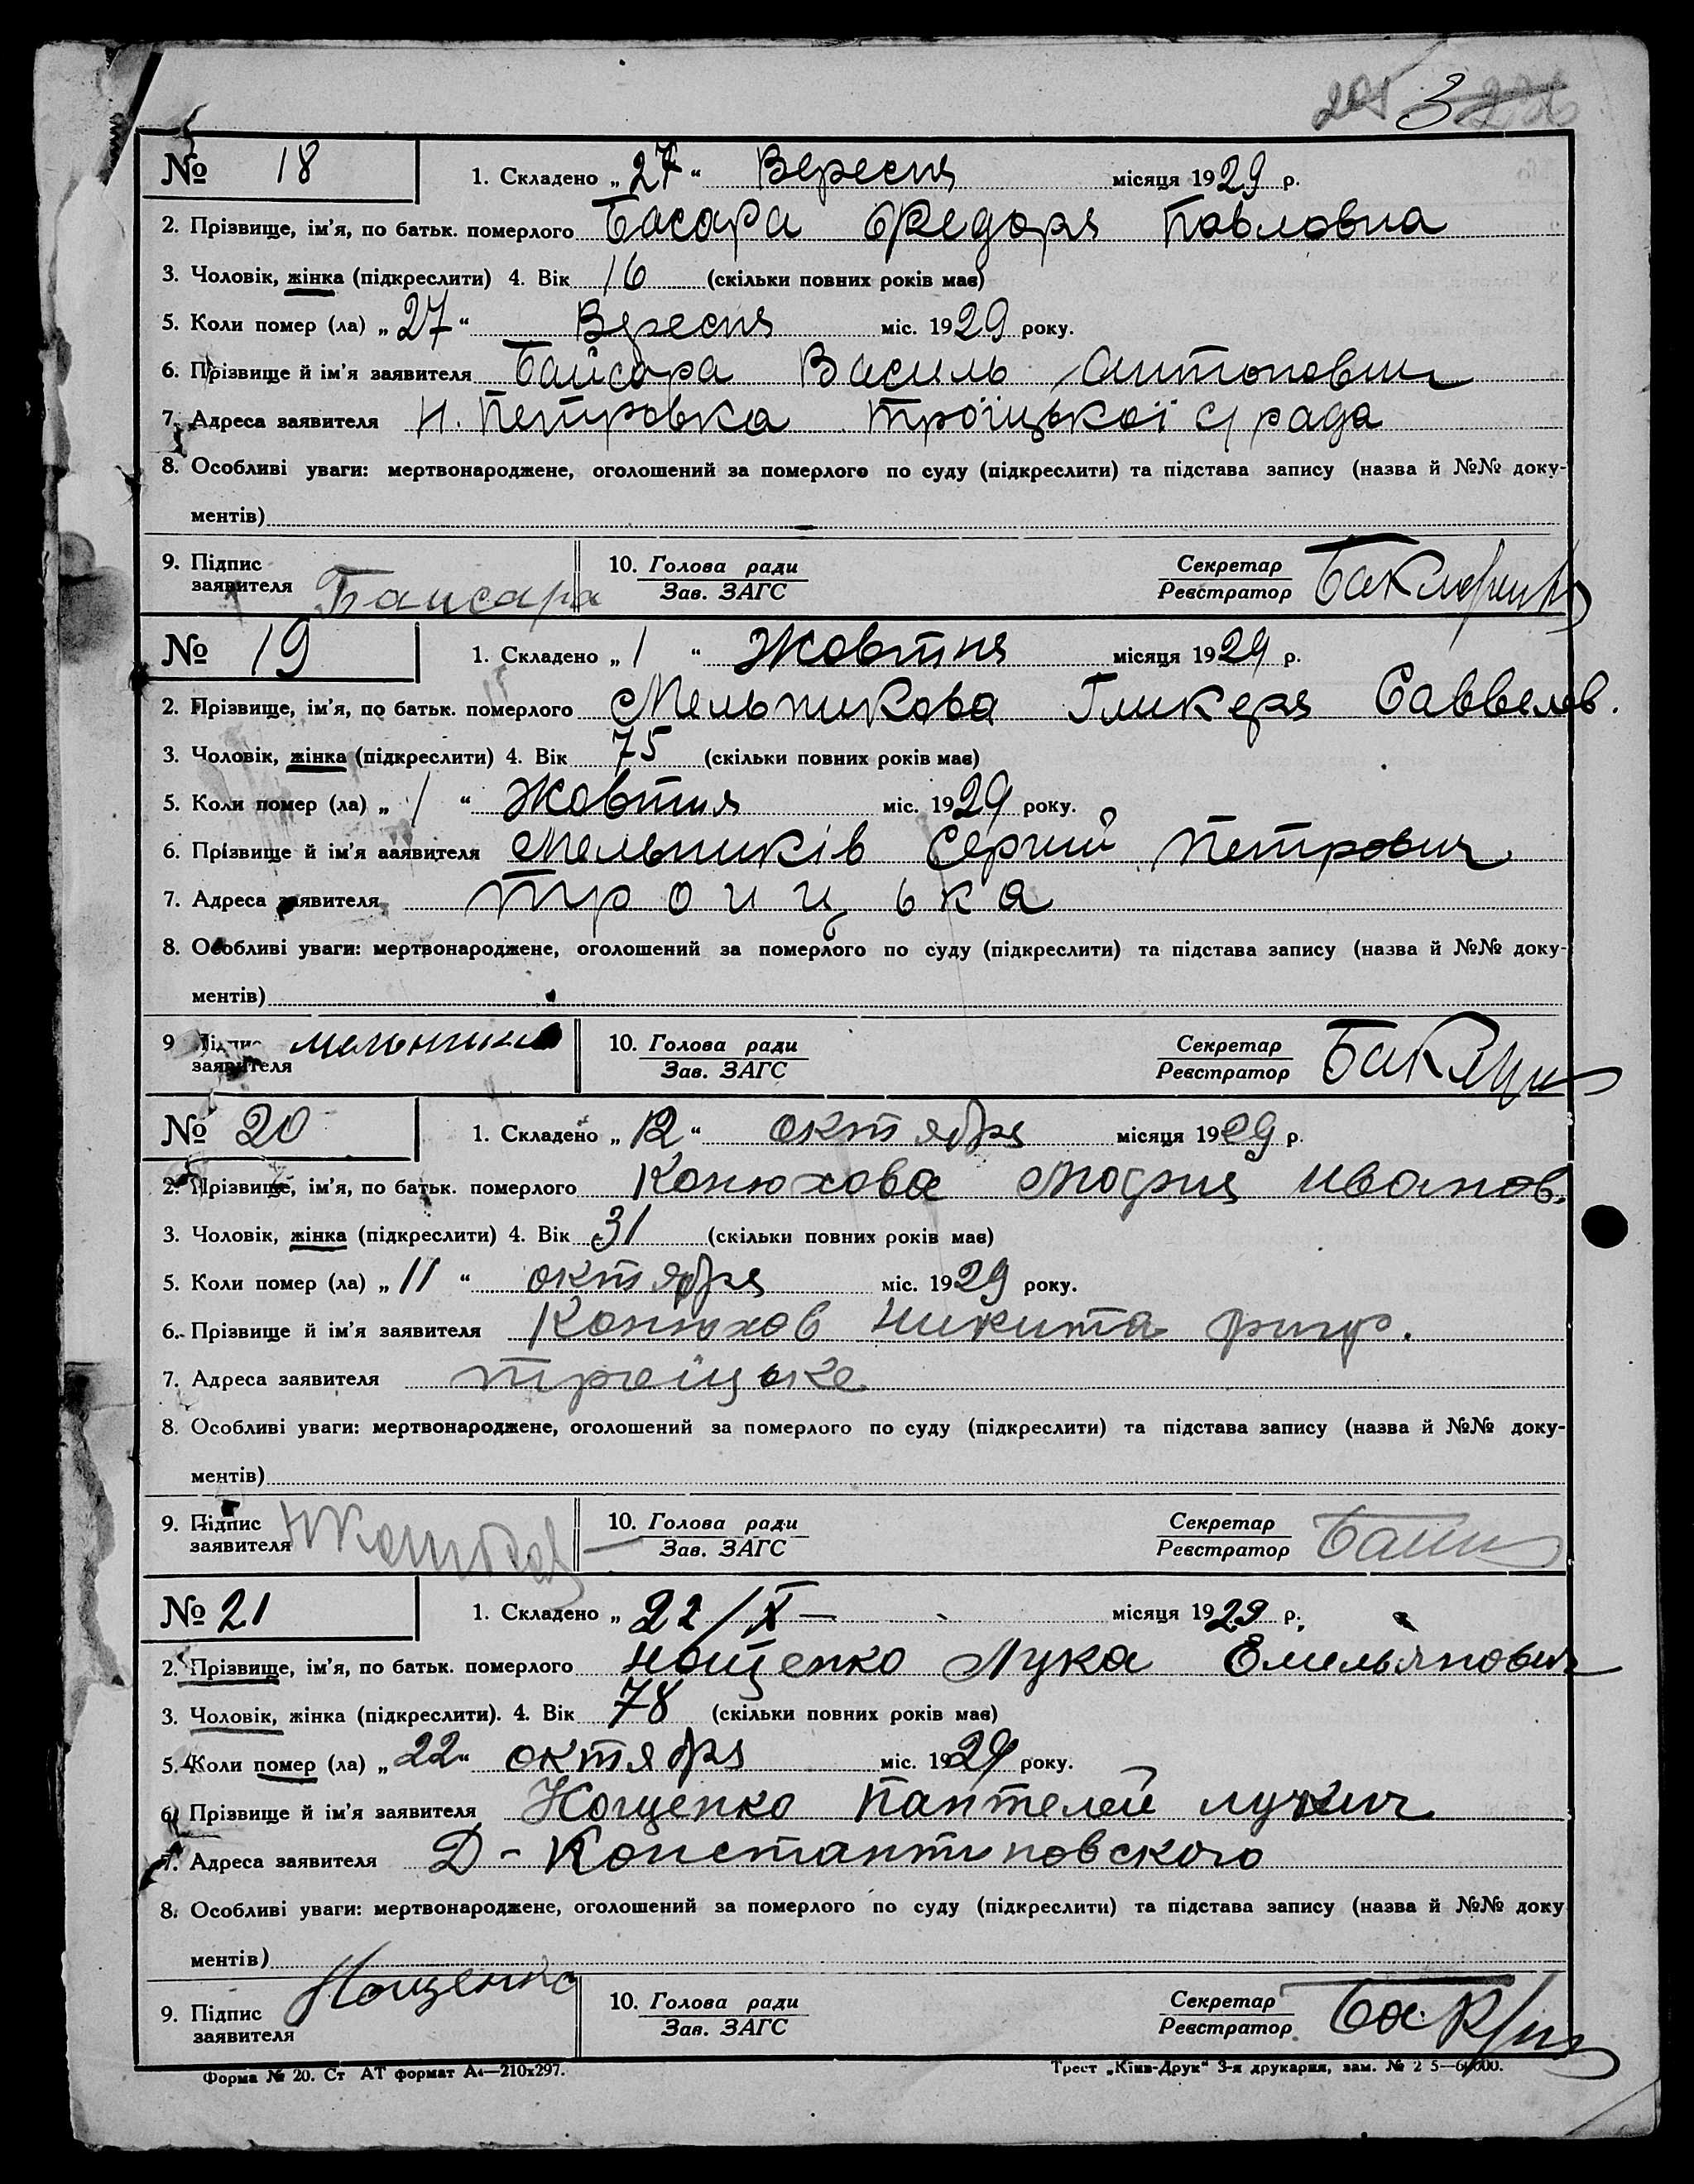 205 3
№ 18 1. Складено „27“ Вересня місяця 1929 р.
2. Прізвище, ім’я, по батьк. померлого Басара Федоря Павловна
3. Чоловік, жінка (підкреслити) 4. Вік 16 (скільки повних років має)
5. Коли помер (ла) „27“ Вересня міс. 1929 року.
6. Прізвище й ім’я заявителя Байсара Василь Антонович
7. Адреса заявителя Н. Петровка Троїцької с/рада
8. Особливі уваги: мертвонароджене, оголошений за померлого по суду (підкреслити) та підстава запису (назва й №№ доку-
ментів)
9. Підпис заявителя Байсара 10. Голова ради Зав. ЗАГС Секретар Реєстратор
№ 19 1. Складено „1“ Жовтня місяця 1929 р.
2. Прізвище, ім’я, по батьк. померлого Мельникова Гликеря Саввелев.
3. Чоловік, жінка (підкреслити) 4. Вік 75 (скільки повних років має)
5. Коли помер (ла) „1“ Жовтня міс. 1929 року.
6. Прізвище й ім’я заявителя Мельників Сергий Петрович
7. Адреса заявителя Троицька
8. Особливі уваги: мертвонароджене, оголошений за померлого по суду (підкреслити) та підстава запису (назва й №№ доку-
ментів)
9 Підпис заявителя 10. Голова ради Зав. ЗАГС Секретар Реєстратор
№ 20 1. Складено „12“ октября місяця 1929 р.
2. Прізвище, ім’я, по батьк. померлого Конюхова Мофия Иванов.
3. Чоловік, жінка (підкреслити) 4. Вік 31 (скільки повних років має)
5. Коли помер (ла) „11“ октября міс. 1929 року.
6. Прізвище й ім’я заявителя Конюхов Никита
7. Адреса заявителя Троїцьке
8. Особливі уваги: мертвонароджене, оголошений за померлого по суду (підкреслити) та підстава запису (назва й №№ доку-
ментів)
9. Підпис заявителя 10. Голова ради Зав. ЗАГС Секретар Реєстратор
№ 21 1. Складено „22/X— місяця 1929 р.
2. Прізвище, ім’я, по батьк. померлого Нощенко Лука Емельянович
3. Чоловік, жінка (підкреслити). 4. Вік 78 (скільки повних років має)
5. Коли помер (ла) „22“ октября міс. 1929 року.
6. Прізвище й ім’я заявителя Нощенко Пантелей Лукич
7. Адреса заявителя Д-Константиновского
8. Особливі уваги: мертвонароджене, оголошений за померлого по суду (підкреслити) та підстава запису (назва й №№ доку
ментів)
9. Підпис заявителя Нощенко 10. Голова ради Зав. ЗАГС Секретар Реєстратор
Форма № 20. Ст АТ формат А4—210х297. Трест „Київ-Друк“ 3-я друкарня, зам. №